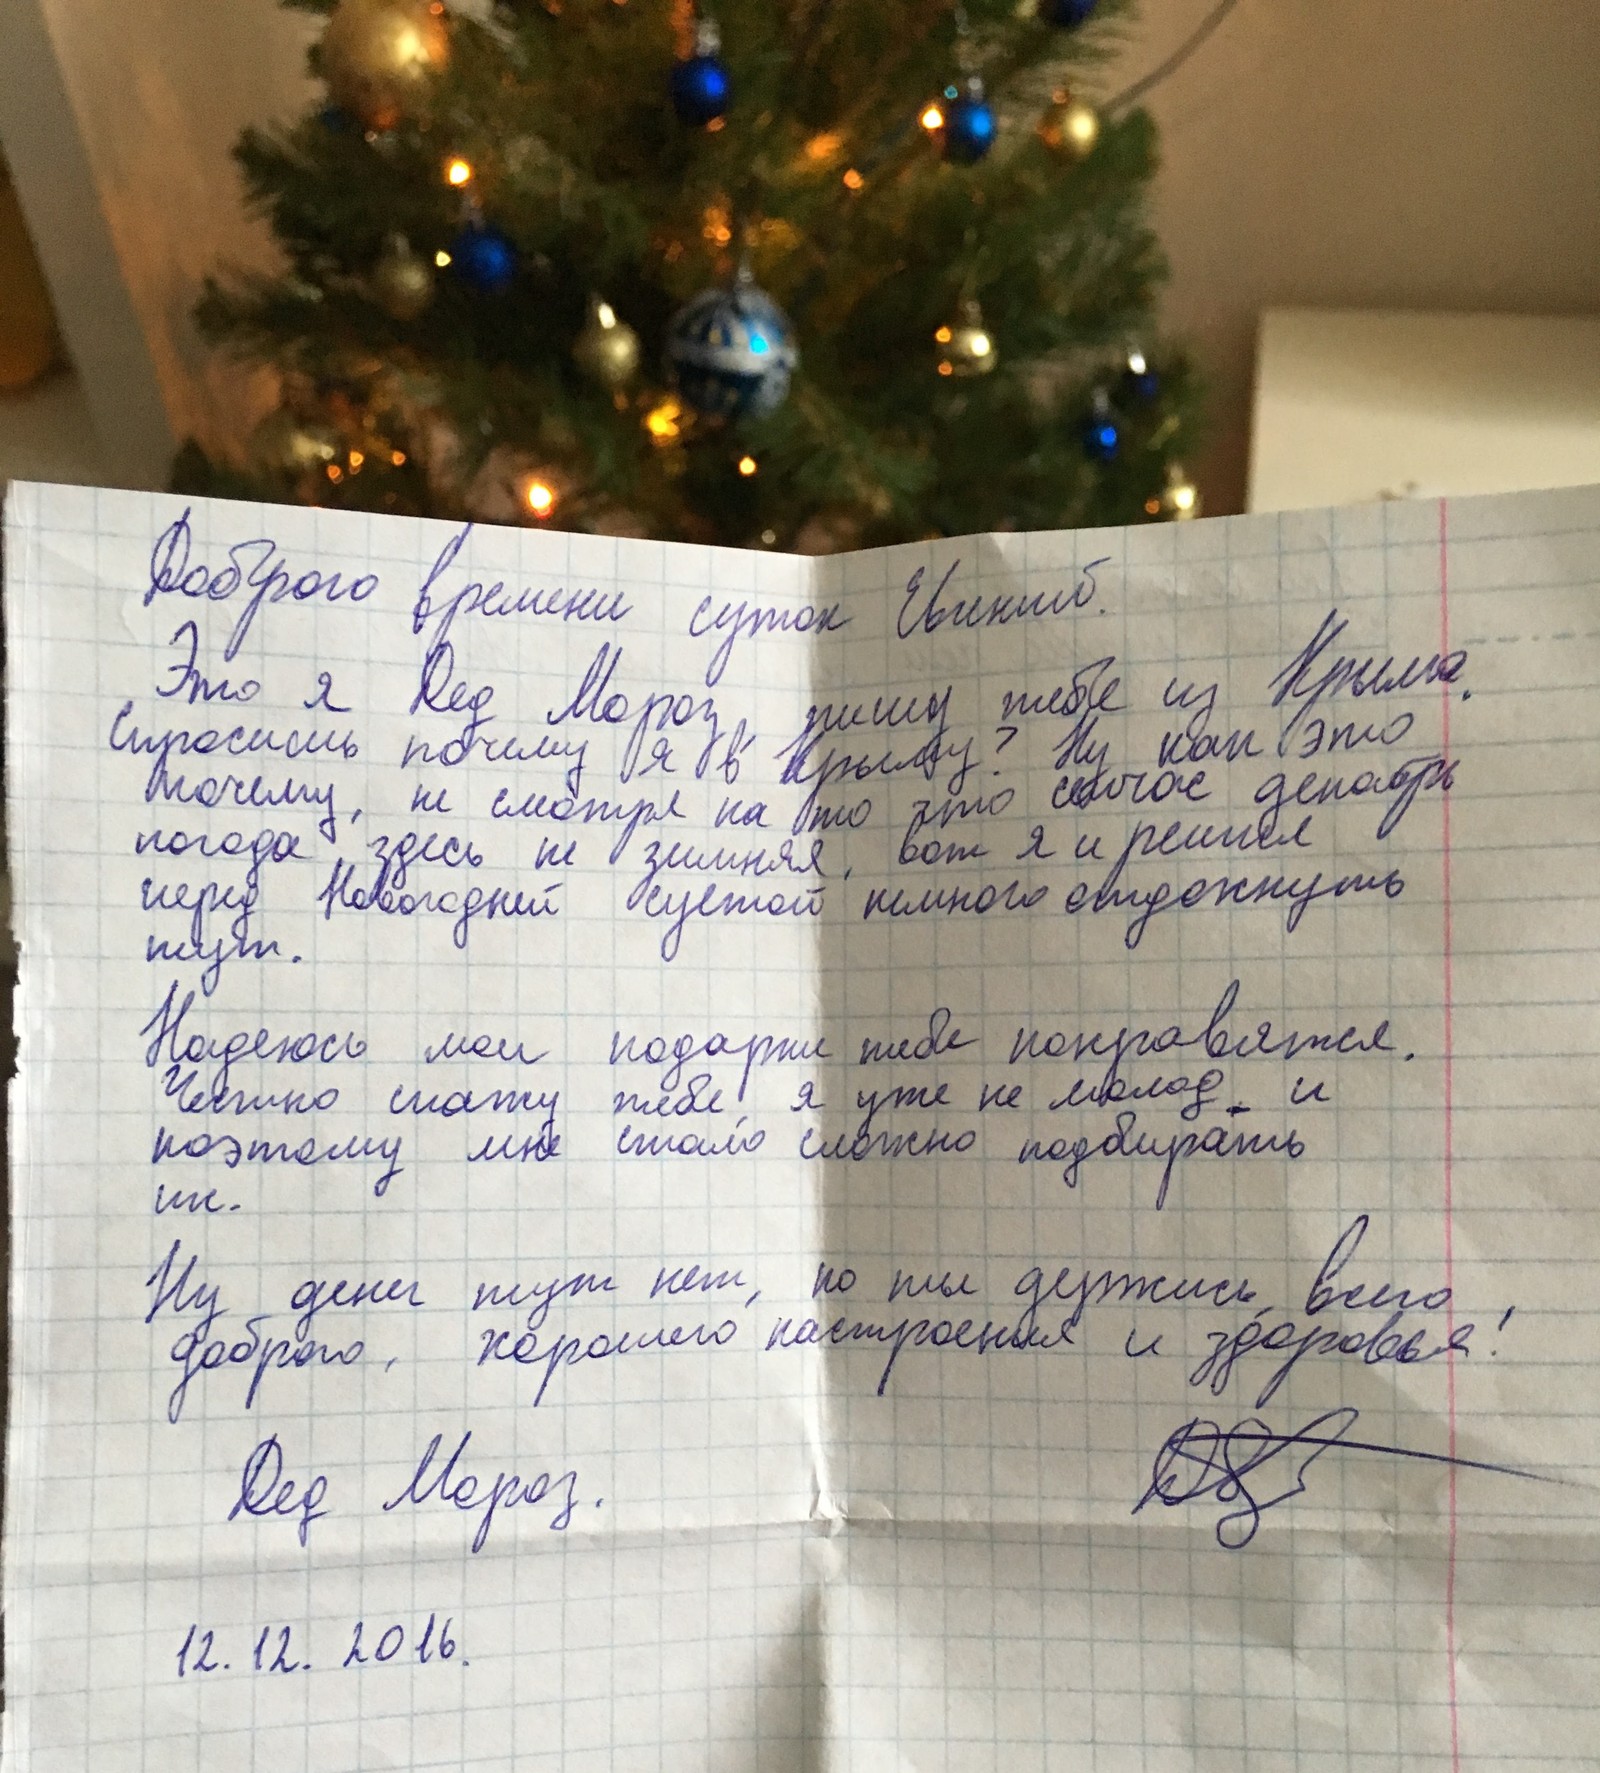 Доброго времени суток Евгений.
Это я Дед Мороз, пишу тебе из Крыма.
Спросишь почему я в Крыму? Ну как это
почему, не смотря на то что сейчас декабрь
погода здесь не зимняя, вот я и решил
перед Новогодней суетой немного отдохнуть
тут.
Надеюсь мои подарки тебе понравятся.
Честно скажу тебе, я уже не молод и
поэтому мне стало сложно подбирать
их.
Ну денег тут нет, но ты держись, всего
доброго, хорошего настроения и здоровья!
Дед Мороз.
12.12.2016.